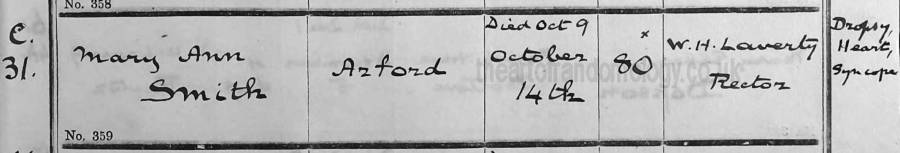 No. 358
C.
31.
Mary Ann
Smith
Arford
Died Oct 9
October
14th
x
80
W. H. Laverty
Rector
Dropsy,
Heart,
Syncope
theartofrandomology.co.uk
No. 359